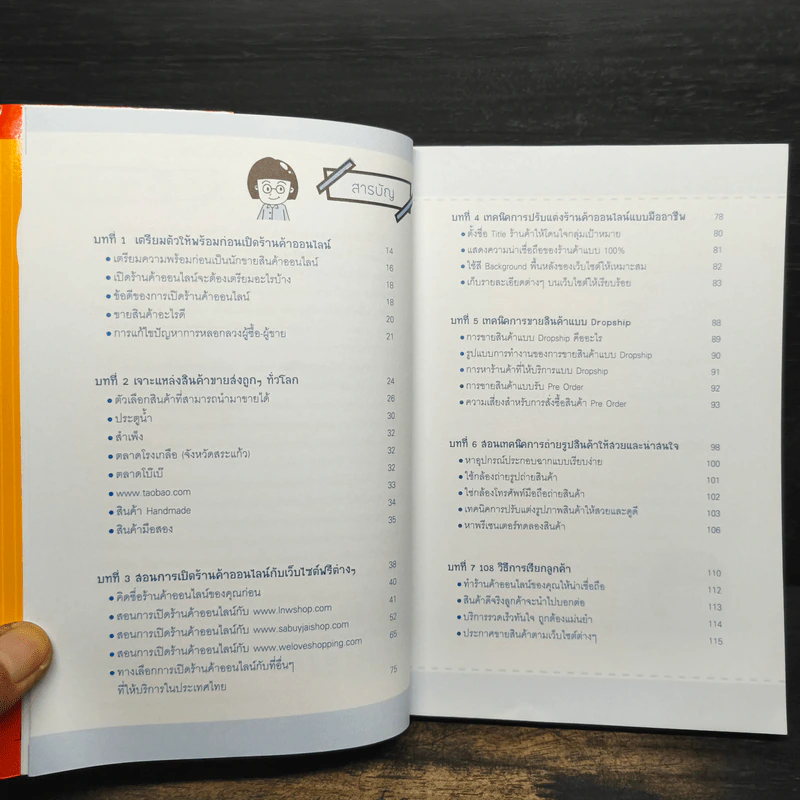 สารบัญ
บทที่ 1 เตรียมตัวให้พร้อมก่อนเปิดร้านค้าออนไลน์ 14
• เตรียมความพร้อมก่อนเป็นนักขายสินค้าออนไลน์ 16
• เปิดร้านค้าออนไลน์จะต้องเตรียมอะไรบ้าง 18
• ข้อดีของการเปิดร้านค้าออนไลน์ 18
• ขายสินค้าอะไรดี 20
• การแก้ไขปัญหาการหลอกลวงผู้ซื้อ-ผู้ขาย 21
บทที่ 2 เจาะแหล่งสินค้าขายส่งถูกๆ ทั่วโลก 24
• ตัวเลือกสินค้าที่สามารถนำมาขายได้ 26
• ประตูน้ำ 30
• สำเพ็ง 32
• ตลาดโรงเกลือ (จังหวัดสระแก้ว) 32
• ตลาดโบ๊เบ๊ 32
• www.taobao.com 33
• สินค้า Handmade 34
• สินค้ามือสอง 35
บทที่ 3 สอนการเปิดร้านค้าออนไลน์กับเว็บไซต์ฟรีต่างๆ 38
• คิดชื่อร้านค้าออนไลน์ของคุณก่อน 40
• สอนการเปิดร้านค้าออนไลน์กับ www.lnwshop.com 41
• สอนการเปิดร้านค้าออนไลน์กับ www.sabuyjaishop.com 52
• สอนการเปิดร้านค้าออนไลน์กับ www.weloveshopping.com 65
• ทางเลือกการเปิดร้านค้าออนไลน์กับที่อื่นๆ 75
ที่ให้บริการในประเทศไทย
บทที่ 4 เทคนิคการปรับแต่งร้านค้าออนไลน์แบบมืออาชีพ 78
• ตั้งชื่อ Title ร้านค้าให้โดนใจกลุ่มเป้าหมาย 80
• แสดงความน่าเชื่อถือของร้านค้าแบบ 100% 81
• ใช้สี Background พื้นหลังของเว็บไซต์ให้เหมาะสม 82
• เก็บรายละเอียดต่างๆ บนเว็บไซต์ให้เรียบร้อย 83
บทที่ 5 เทคนิคการขายสินค้าแบบ Dropship 88
• การขายสินค้าแบบ Dropship คืออะไร 89
• รูปแบบการทำงานของการขายสินค้าแบบ Dropship 90
• การหาร้านค้าที่ให้บริการแบบ Dropship 91
• การขายสินค้าแบบรับ Pre Order 92
• ความเสี่ยงสำหรับการสั่งซื้อสินค้า Pre Order 93
บทที่ 6 สอนเทคนิคการถ่ายรูปสินค้าให้สวยและน่าสนใจ 98
• หาอุปกรณ์ประกอบฉากแบบเรียบง่าย 100
• ใช้กล้องถ่ายรูปถ่ายสินค้า 101
• ใช้กล้องโทรศัพท์มือถือถ่ายสินค้า 102
• เทคนิคการปรับแต่งรูปภาพสินค้าให้สวยและดูดี 103
• หาพรีเซนเตอร์ทดลองสินค้า 106
บทที่ 7 108 วิธีการเรียกลูกค้า 110
• ทำร้านค้าออนไลน์ของคุณให้น่าเชื่อถือ 112
• สินค้าดีจริงลูกค้าจะนำไปบอกต่อ 113
• บริการรวดเร็วทันใจ ถูกต้องแม่นยำ 114
• ประกาศขายสินค้าตามเว็บไซต์ต่างๆ 115